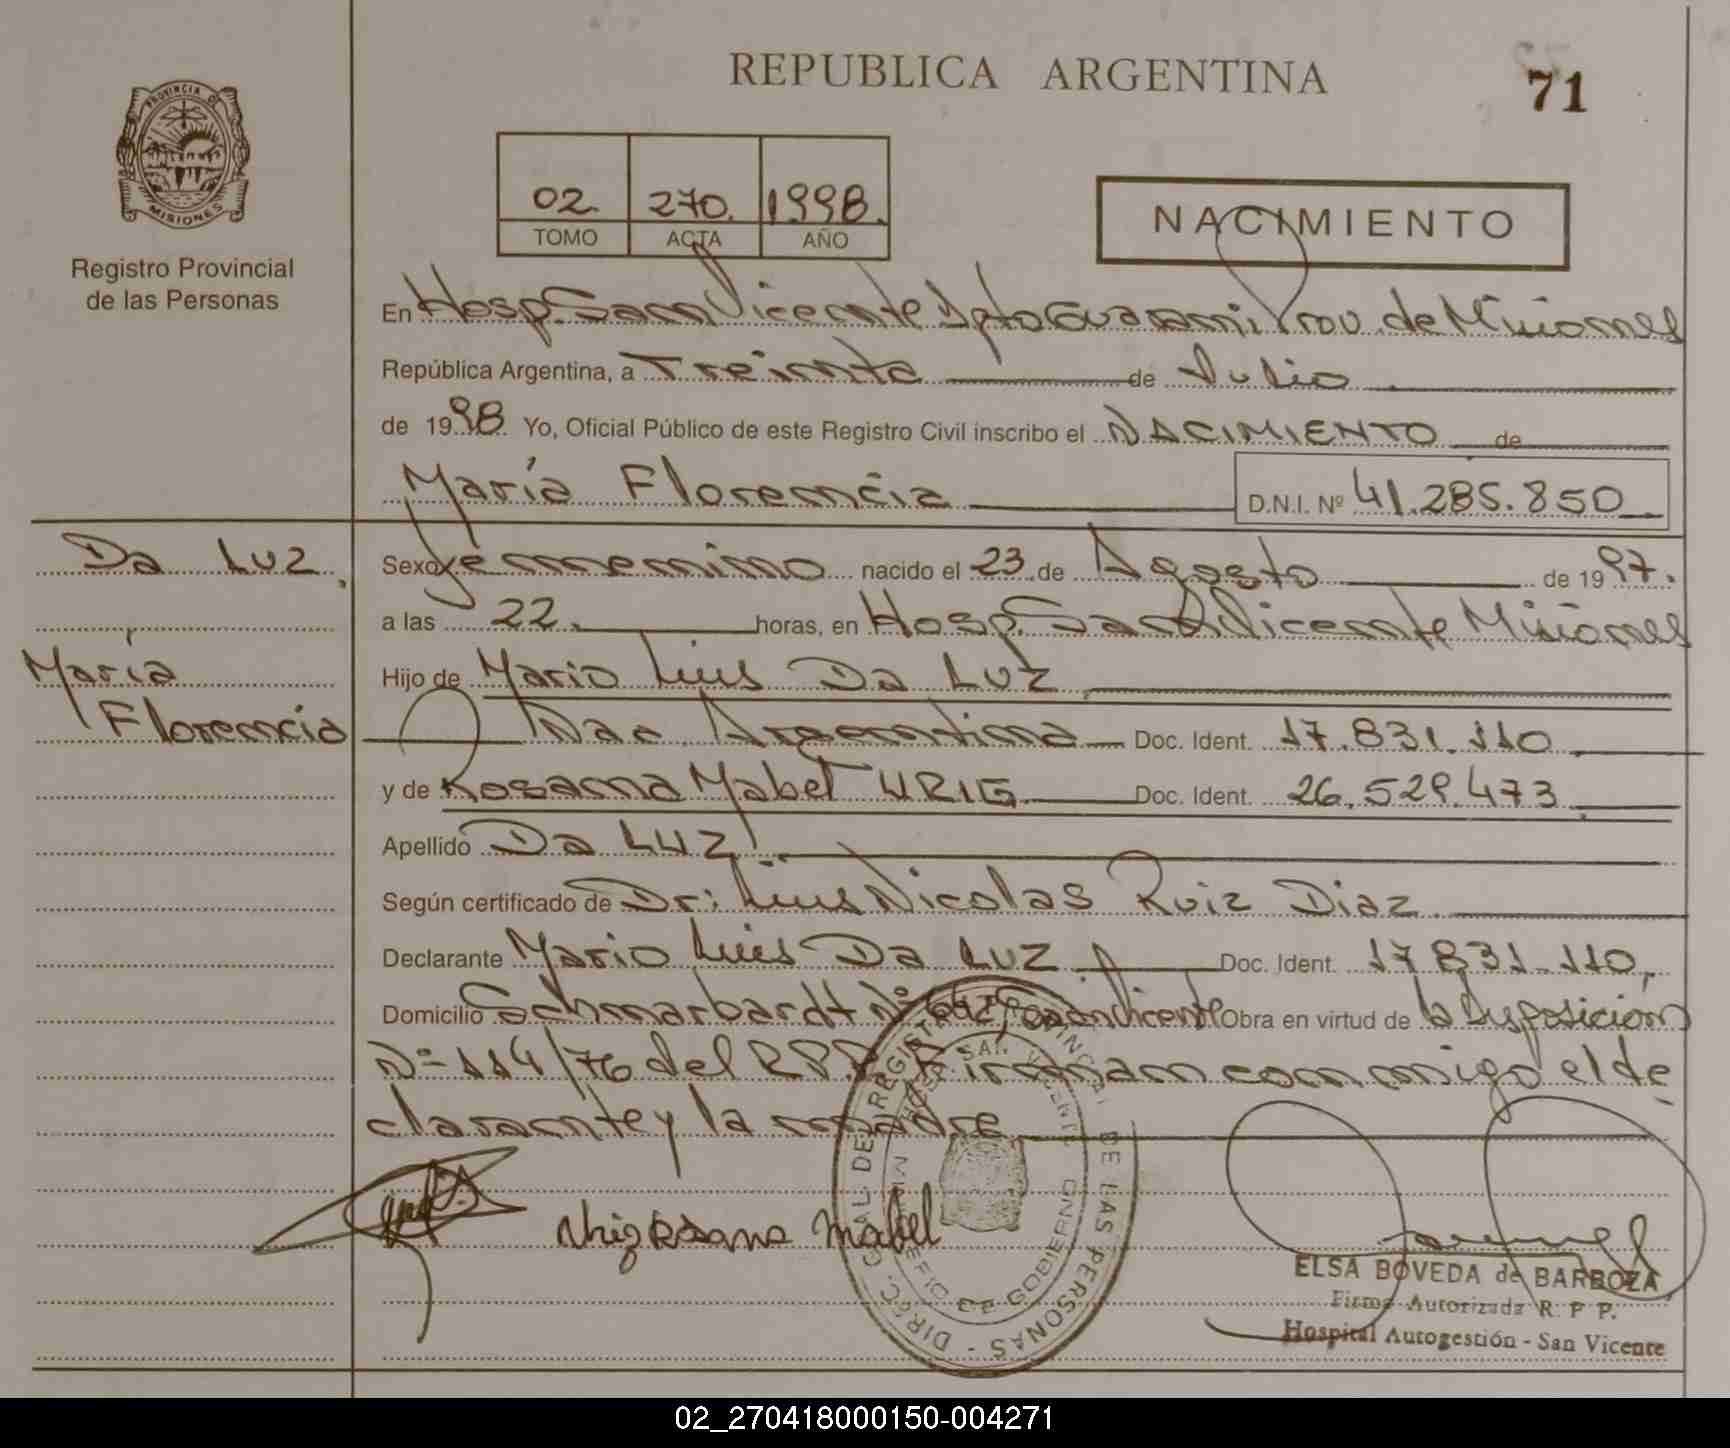 REPUBLICA ARGENTINA
71
PROVINCIA DE
MISIONES
Registro Provincial
de las Personas
02. 270. 1998.
TOMO ACTA AÑO
NACIMIENTO
En Hosp. San Vicente Dpto Guarani Prov. de Misiones
República Argentina, a Treinta de Julio
de 1998 Yo, Oficial Público de este Registro Civil inscribo el NACIMIENTO de
María Florencia D.N.I. Nº 41.285.850
Da Luz
María
Florencia
Sexo femenino nacido el 23 de Agosto de 1997.
a las 22. horas, en Hosp. San Vicente Misiones
Hijo de Mario Luis Da Luz
Nac. Argentina Doc. Ident. 17.831.110
y de Rosana Mabel URIG Doc. Ident. 26.529.473
Apellido Da Luz
Según certificado de Dr: Luis Nicolas Ruiz Diaz
Declarante Mario Luis Da Luz Doc. Ident. 17831.110,
Domicilio San Vicente Obra en virtud de la Disposición
Nº 114/76 del R.P.P. Firman conmigo el de
clarante y la madre
Rosana Mabel
DIREC. PROVINCIAL DE REGISTRO DE LAS PERSONAS
SAN VICENTE
GOBIERNO
ELSA BOVEDA de BARBOZA
Firma Autorizada R. P P.
Hospital Autogestión - San Vicente
02_270418000150-004271